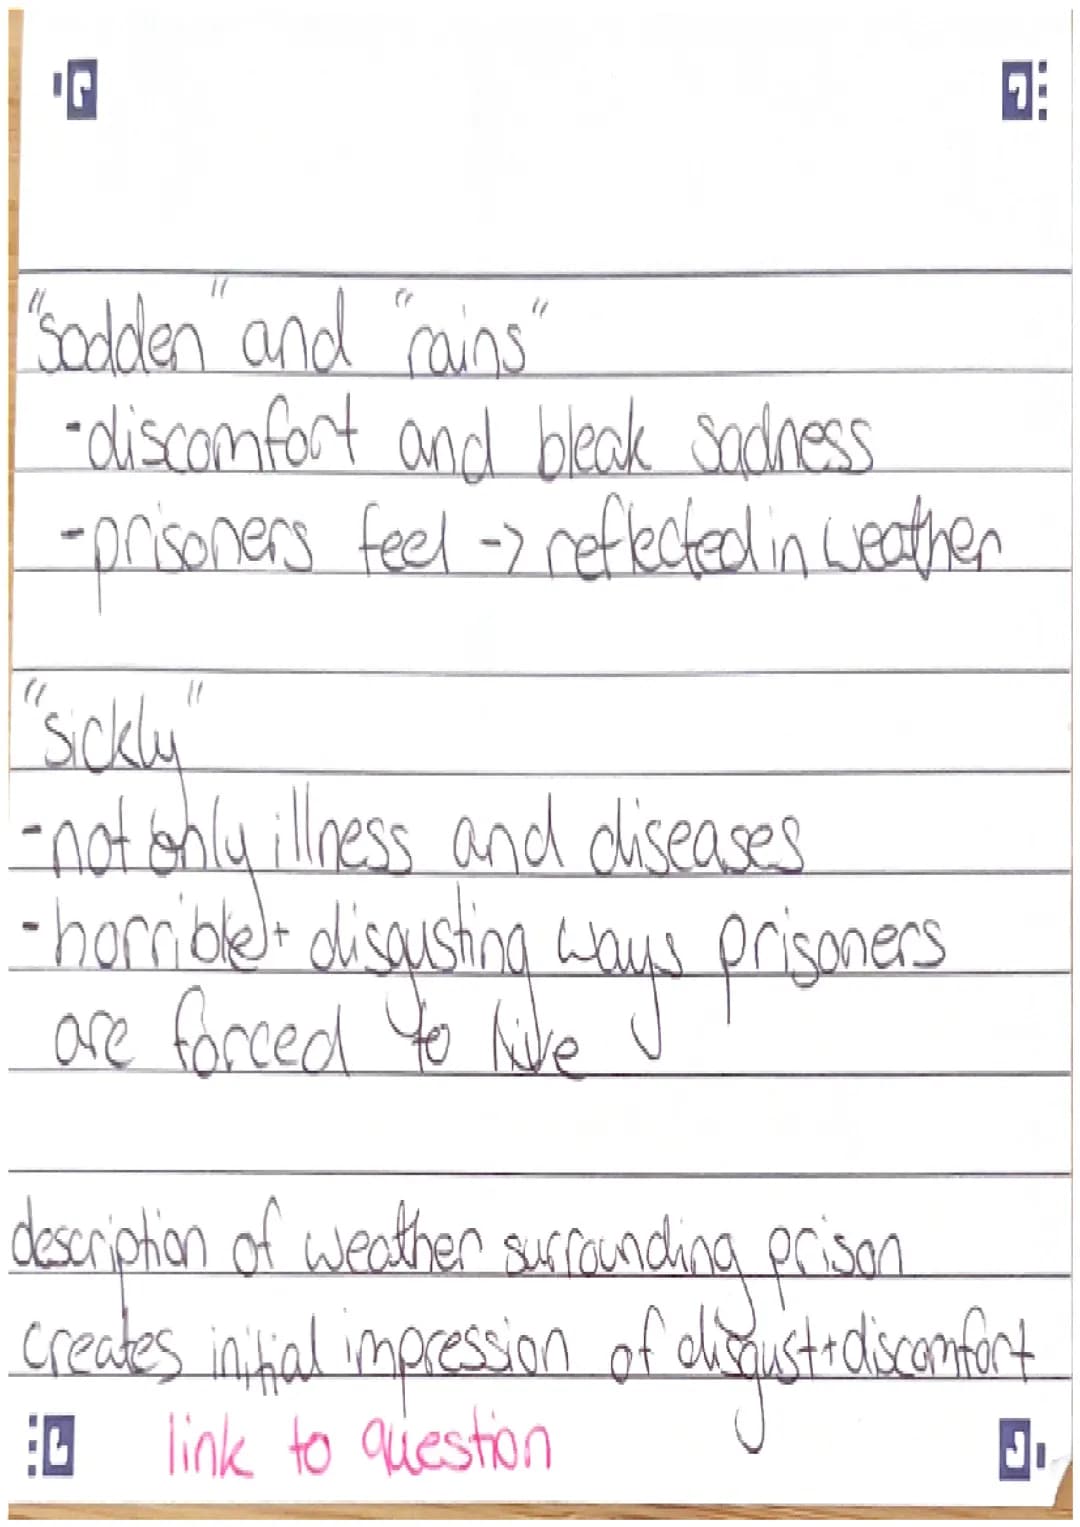 "sodden" and "rains"
-discomfort and bleak sadness
-prisoners feel -> reflected in weather
"sickly"
-not only illness and diseases
-horrible + disgusting ways prisoners
are forced to live
description of weather surrounding prison
creates initial impression of disgust + discomfort
link to question